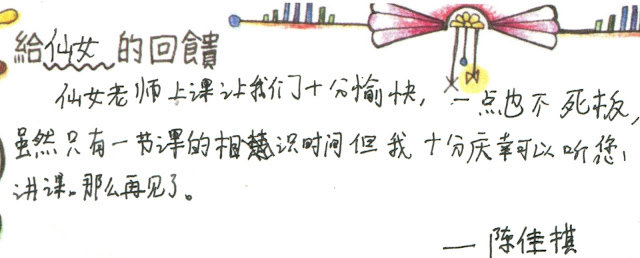 給仙女的回饋
仙女老师上课让我们十分愉快，一点也不死板，
虽然只有一节课的相识时间但我十分庆幸可以听您
讲课。那么再见了。
— 陈佳棋